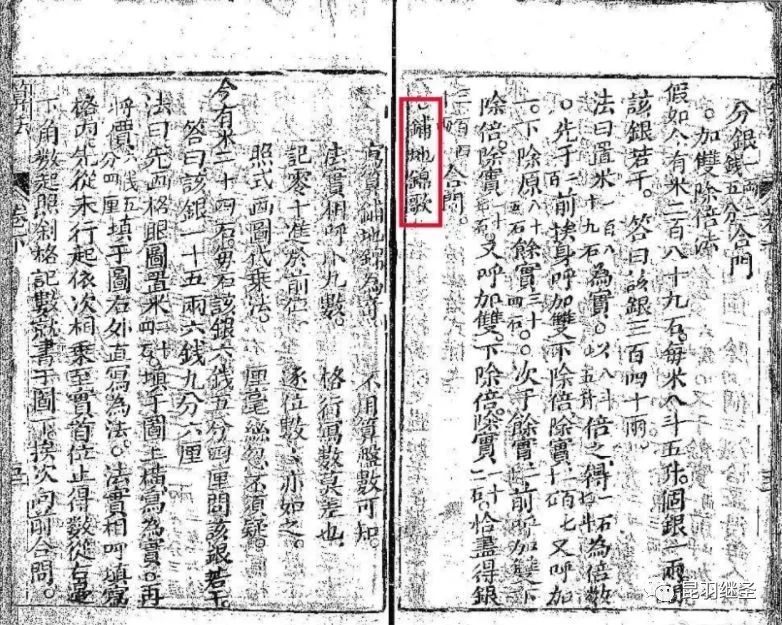 分銀一兩二錢五分合問
。加雙除倍法
假如今有米二百八十九石。每米八斗五升。個銀一兩問
該銀若干。 答曰該銀三百四十兩。
法曰置米二百八十九石為實。以八斗五升倍之得一石為倍數
。先于二前挨身呼加雙下除倍除實一百七又呼加
一。下除原八十五石餘實三十四石。次于餘實前呼加雙下
除倍。除實又呼加雙。下除倍。除實石。恰盡得銀
三百四合問。
鋪地錦歌
寫算鋪地錦為奇 不用算盤數可知。
法實相呼小九數。 格行寫數莫差池
記零十進於前位 逐位數數亦如之。
照式画圖代乘法。 厘毫絲忽不須疑。
今有米二十四石。每石該銀六錢五分四厘問該銀若干。
答曰該銀一十五兩六錢九分六厘
法曰先画格眼圖置米二十四石。填于圖上橫寫為實。再
將價六錢五分四厘填于圖右外直寫為法。法實相呼填寫
格內先從末行起依次相乘至實首位止得數從右邊
下角數起照斜格記數就書于圖下挨次向前合問。
算法 卷下 五
昆羽继圣